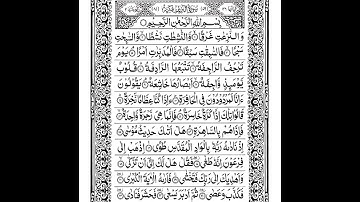 بِسْمِ اللهِ الرَّحْمٰنِ الرَّحِيْمِ
وَالنّٰزِعٰتِ غَرْقًا ۙ وَّالنّٰشِطٰتِ نَشْطًا ۙ وَّالسّٰبِحٰتِ
سَبْحًا ۙ فَالسّٰبِقٰتِ سَبْقًا ۙ فَالْمُدَبِّرٰتِ اَمْرًا ۘ يَوْمَ
تَرْجُفُ الرَّاجِفَةُ ۙ تَتْبَعُهَا الرَّادِفَةُ ؕ قُلُوْبٌ
يَّوْمَىِٕذٍ وَّاجِفَةٌ ۙ اَبْصَارُهَا خَاشِعَةٌ ۘ يَقُوْلُوْنَ
ءَاِنَّا لَمَرْدُوْدُوْنَ فِى الْحَافِرَةِ ؕ ءَاِذَا كُنَّا عِظَامًا نَّخِرَةً ؕ
قَالُوْا تِلْكَ اِذًا كَرَّةٌ خَاسِرَةٌ ۘ فَاِنَّمَا هِىَ زَجْرَةٌ وَّاحِدَةٌ ۙ
فَاِذَا هُمْ بِالسَّاهِرَةِ ؕ هَلْ اَتٰىكَ حَدِيْثُ مُوْسٰى ۘ
اِذْ نَادٰىهُ رَبُّهٗ بِالْوَادِ الْمُقَدَّسِ طُوًى ۚ اِذْهَبْ اِلٰى
فِرْعَوْنَ اِنَّهٗ طَغٰى ۖ فَقُلْ هَلْ لَّكَ اِلٰٓى اَنْ تَزَكّٰى ۙ
وَاَهْدِيَكَ اِلٰى رَبِّكَ فَتَخْشٰى ۚ فَاَرٰىهُ الْاٰيَةَ الْكُبْرٰى ۖ
فَكَذَّبَ وَعَصٰى ۖ ثُمَّ اَدْبَرَ يَسْعٰى ۖ فَحَشَرَ فَنَادٰى ۖ